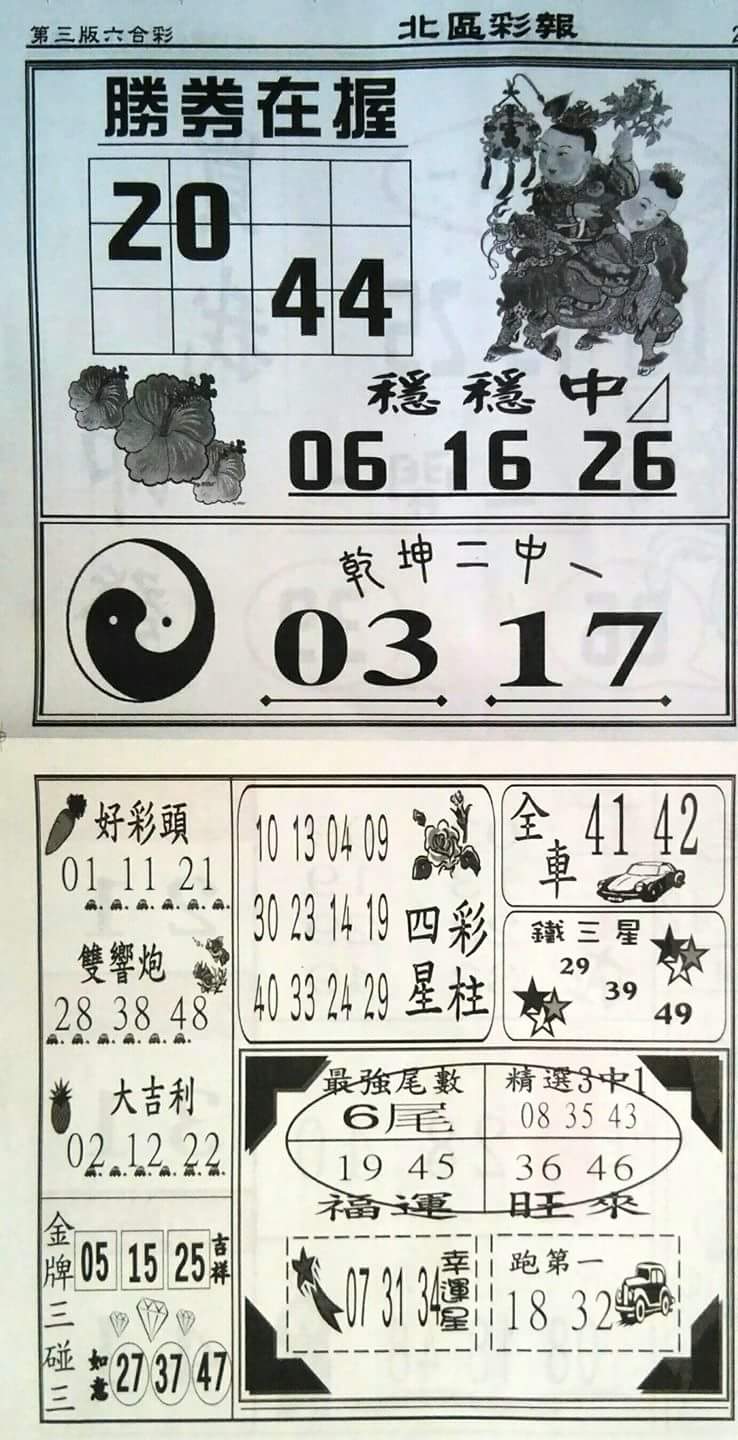 第三版六合彩
北區彩報
2
勝券在握
20
44
穩穩中
06 16 26
乾坤二中一
03 17
好彩頭
01 11 21
雙響炮
28 38 48
大吉利
02 12 22
金牌三碰三
05 15 25
吉祥
如意
27 37 47
10 13 04 09
30 23 14 19
40 33 24 29
四星彩柱
全車
41 42
鐵三星
29
39
49
最強尾數
6尾
精選3中1
08 35 43
19 45
36 46
福運旺來
07 31 34
幸運星
跑第一
18 32